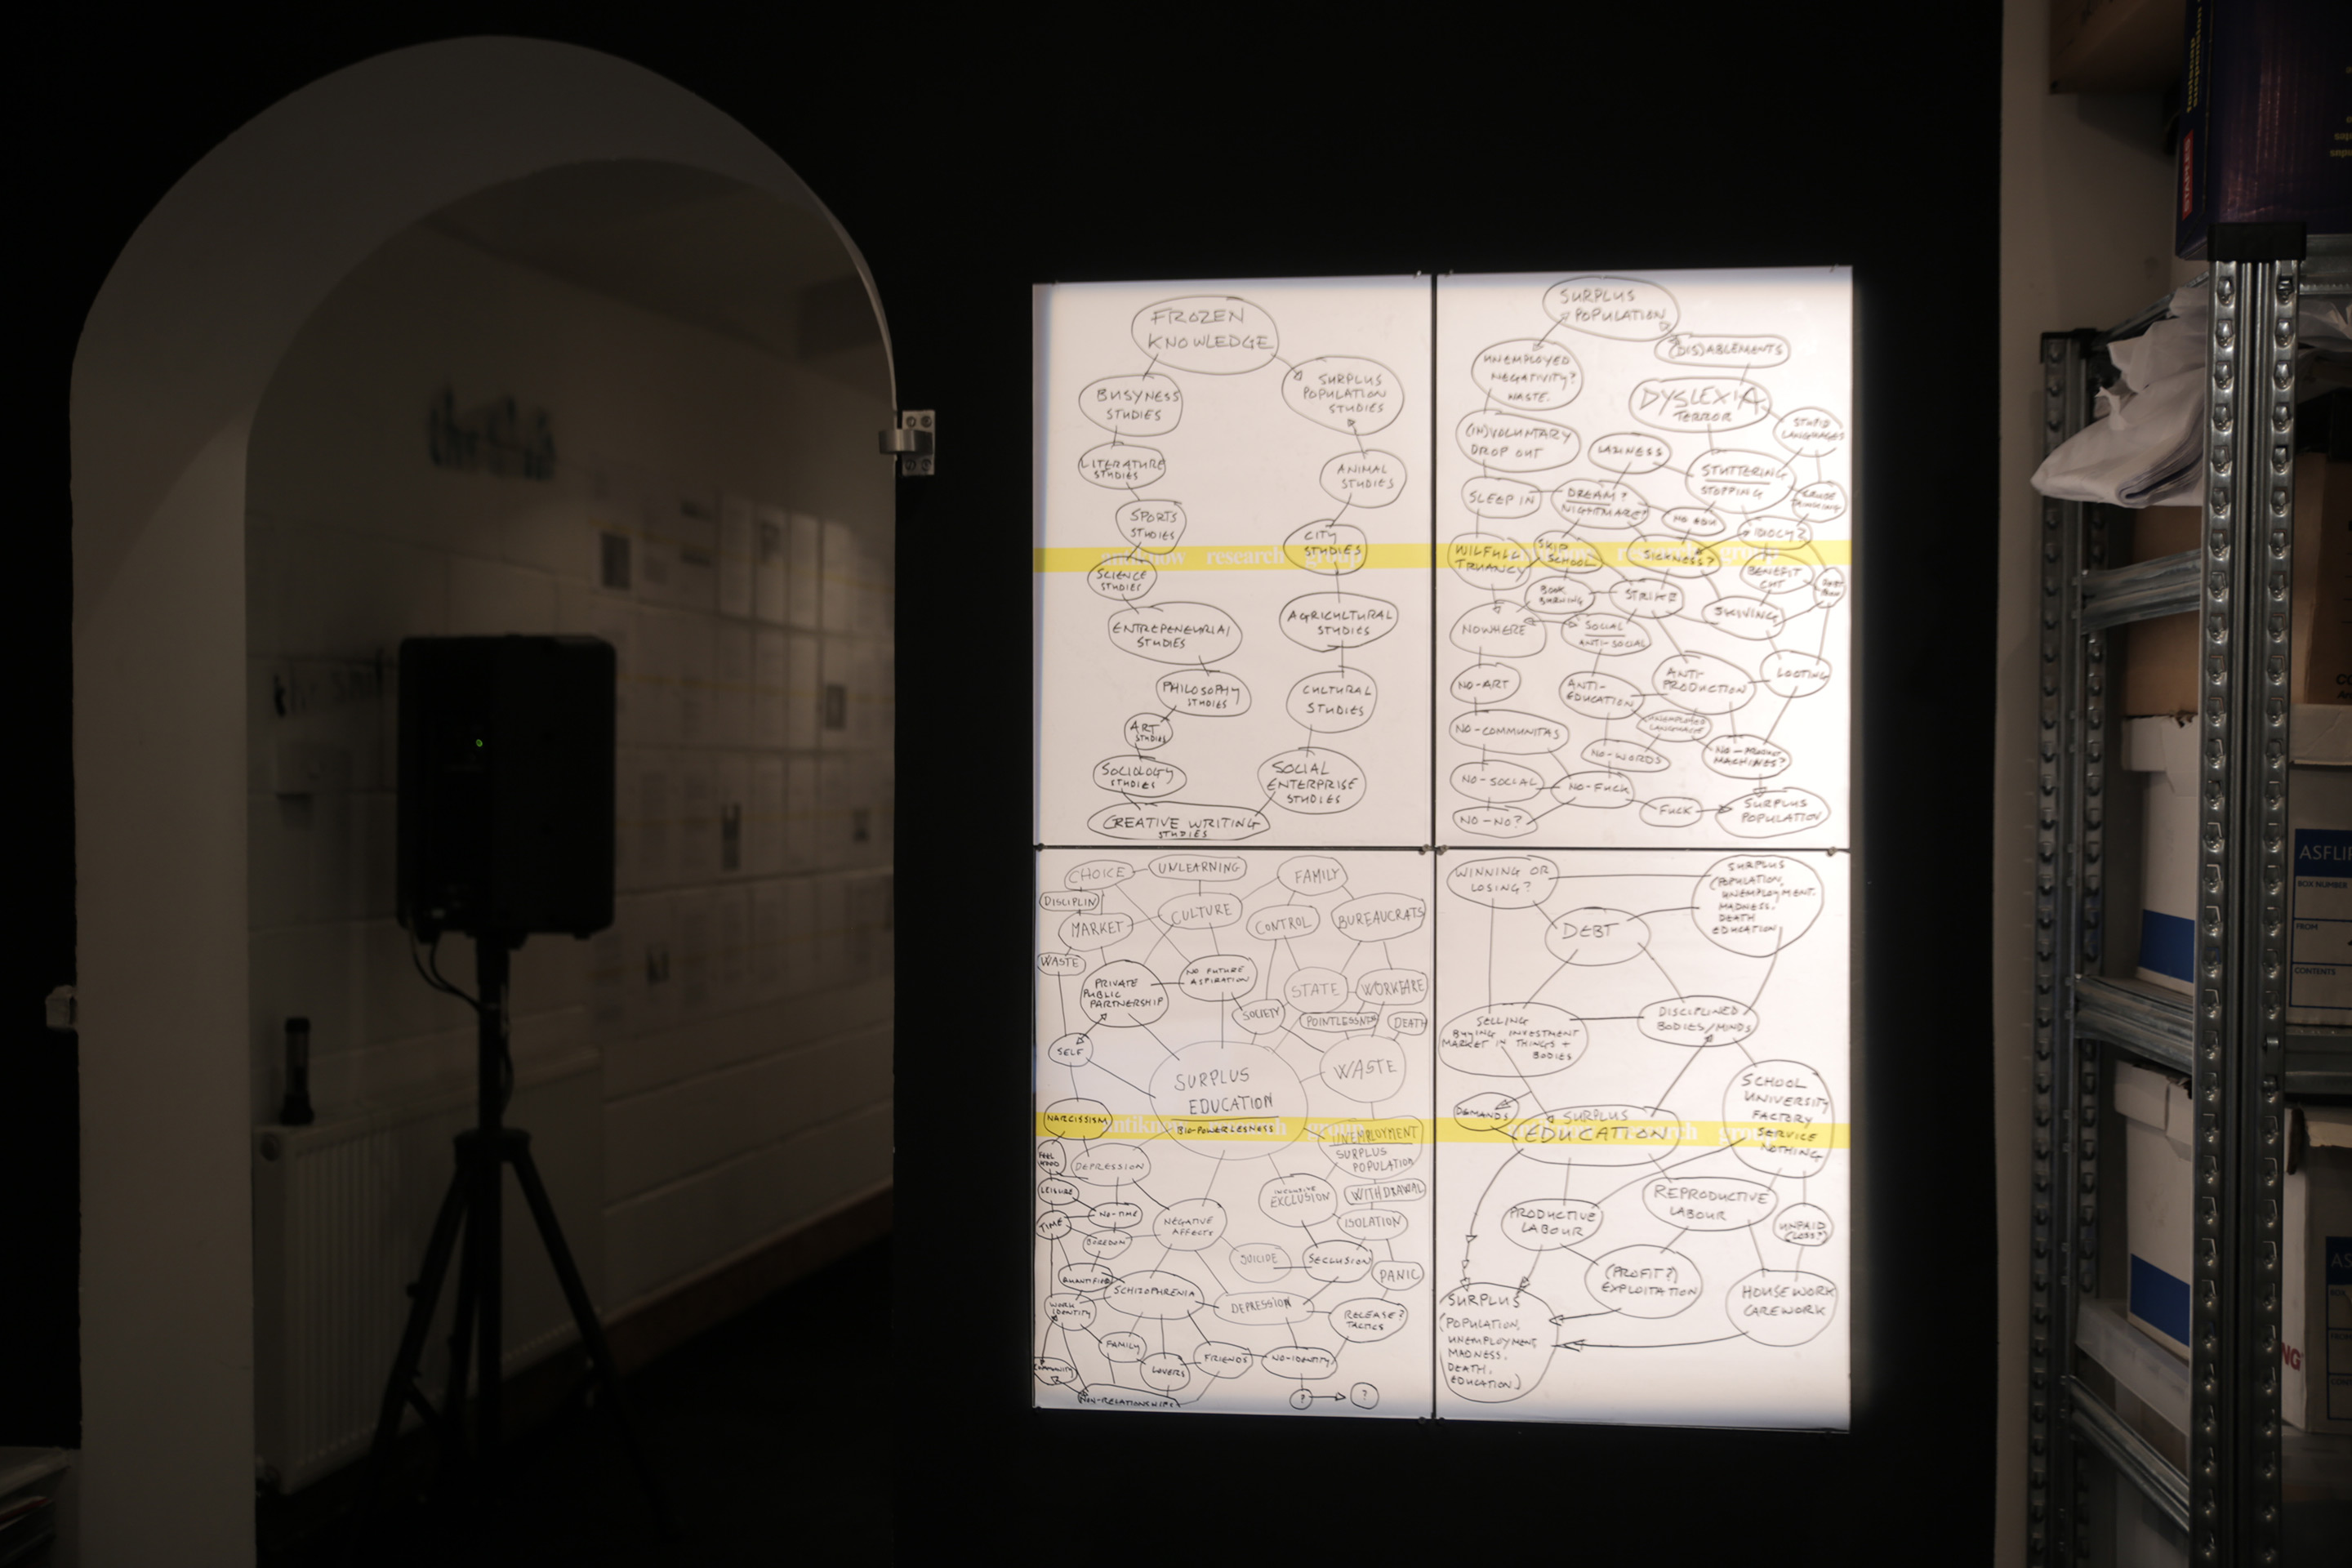 FROZEN
KNOWLEDGE
BUSYNESS
STUDIES
SURPLUS
POPULATION
STUDIES
LITERATURE
STUDIES
ANIMAL
STUDIES
SPORTS
STUDIES
CITY
STUDIES
antiknow research group
SCIENCE
STUDIES
ENTREPENEURIAL
STUDIES
AGRICULTURAL
STUDIES
PHILOSOPHY
STUDIES
CULTURAL
STUDIES
ART
STUDIES
SOCIOLOGY
STUDIES
SOCIAL
ENTERPRISE
STUDIES
CREATIVE WRITING
STUDIES
SURPLUS
POPULATION
(DIS)ABLEMENTS
UNEMPLOYED
NEGATIVITY?
WASTE.
DYSLEXIA
TERROR
STUPID
LANGUAGES
(IN)VOLUNTARY
DROP OUT
LAZINESS
STUTTERING
STOPPING
SLEEP IN
DREAM?
NIGHTMARE?
CRUDE
THINKING
NO EDU
IDIOCY?
WILFULL
TRUANCY
SKIP
SCHOOL
SICKNESS?
research group
BENEFIT
CUT
BOOK
BURNING
STRIKE
SKIVING
NOWHERE
SOCIAL
ANTI-SOCIAL
NO-ART
ANTI-
EDUCATION
ANTI-
PRODUCTION
LOOTING
NO-COMMUNITAS
UNEMPLOYED
LANGUAGE
NO-WORDS
NO-PRODUCT
MACHINES?
NO-SOCIAL
NO-FUCK
FUCK
SURPLUS
POPULATION
NO-NO?
CHOICE
UNLEARNING
FAMILY
DISCIPLIN
MARKET
CULTURE
CONTROL
BUREAUCRATS
WASTE
PRIVATE
PUBLIC
PARTNERSHIP
NO FUTURE
ASPIRATION
STATE
WORKFARE
SOCIETY
POINTLESSNESS
DEATH
SELF
WASTE
SURPLUS
EDUCATION
BIO-POWERLESNESS
NARCISSISM
antiknow research group
UNEMPLOYMENT
SURPLUS
POPULATION
FEEL
GOOD
DEPRESSION
LEISURE
INCLUSIVE
EXCLUSION
WITHDRAWAL
TIME
NO-TIME
NEGATIVE
AFFECTS
ISOLATION
BOREDOM
SUICIDE
SECLUSION
PANIC
QUANTIFIED
SCHIZOPHRENIA
WORK
IDENTITY
DEPRESSION
RELEASE?
TACTICS
FAMILY
LOVERS
FRIENDS
NO-IDENTITY
COMMUNITY
NON-RELATIONSHIPS
? ?
WINNING OR
LOSING?
SURPLUS
(POPULATION,
UNEMPLOYMENT,
MADNESS,
DEATH
EDUCATION)
DEBT
SELLING
BUYING INVESTMENT
MARKET IN THINGS +
BODIES
DISCIPLINED
BODIES/MINDS
SCHOOL
UNIVERSITY
FACTORY
SERVICE
NOTHING
DEMANDS
SURPLUS
EDUCATION
PRODUCTIVE
LABOUR
REPRODUCTIVE
LABOUR
UNPAID
(LOSS?)
(PROFIT?)
EXPLOITATION
HOUSEWORK
CAREWORK
SURPLUS
(POPULATION,
UNEMPLOYMENT,
MADNESS,
DEATH,
EDUCATION)
STAPLES
BOX NUMBER
FROM
CONTENTS